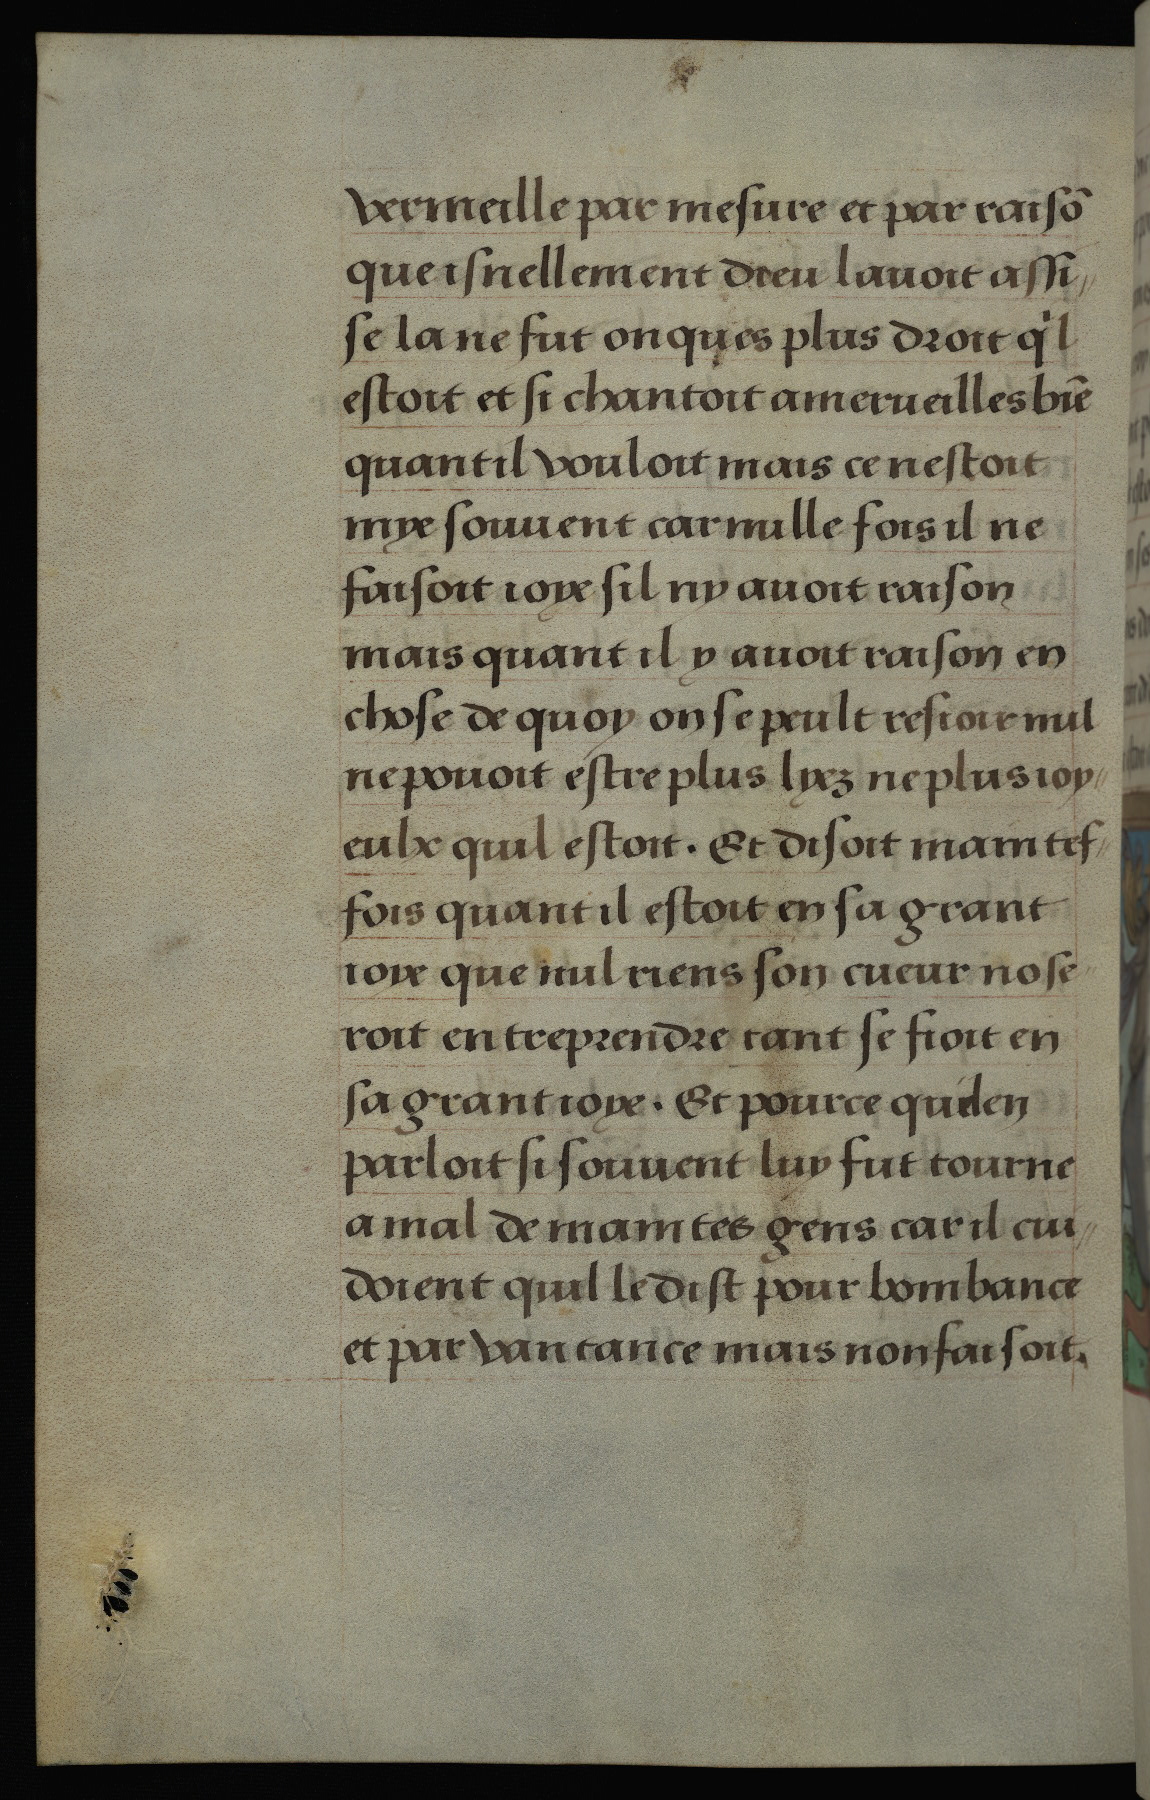 vermeille par mesure et par raisō
que isnellement dieu lauoit assi//
se la ne fut onques plus droit q'l
estoit et si chantoit a merueilles biē
quant il vouloit mais ce nestoit
mye souuent car nulle fois il ne
faisoit ioye sil ny auoit raison
mais quant il y auoit raison en
chose de quoy on se peult resioir nul
ne pouoit estre plus lyez ne plus ioy//
eulx quil estoit. Et disoit maintef//
fois quant il estoit en sa grant
ioye que nul riens son cueur nose//
roit entreprendre tant se fioit en
sa grant ioye. Et pource quilen
parloit si souuent luy fut tourne
a mal de maintes gens car il cui//
doient quil le dist pour bombance
et par vantance mais non faisoit.